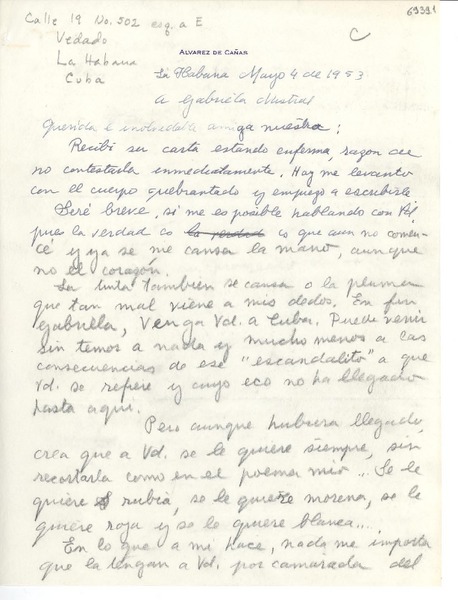 69391
Calle 19 No. 502 esq. a E
Vedado
La Habana
Cuba
C
ALVAREZ DE CAÑAS
La Habana Mayo 4 de 1953
A Gabriela Mistral
Querida e inolvidable amiga nuestra:
Recibí su carta estando enferma, razon de
no contestarla inmediatamente. Hoy me levanto
con el cuerpo quebrantado y empiezo a escribirle
Seré breve, si me es posible hablando con Vd,
pues la verdad es la verdad es que aun no comen-
cé y ya se me cansa la mano, aunque
no el corazón.
La tinta tambien se cansa o la pluma
que tan mal viene a mis dedos. En fin
Gabriela, Venga Vd. a Cuba. Puede venir
sin temos a nada y mucho menos a las
consecuencias de ese "escandalito" a que
Vd. se refiere y cuyo eco no ha llegado
hasta aqui.
Pero aunque hubiera llegado,
crea que a Vd. se le quiere siempre, sin
recortarla como en el poema mio... Se le
quiere rubia, se le quiere morena, se le
quiere roja y se le quiere blanca...
En lo que a mi hace, nada me importa
que la tengan a Vd. por camarada del